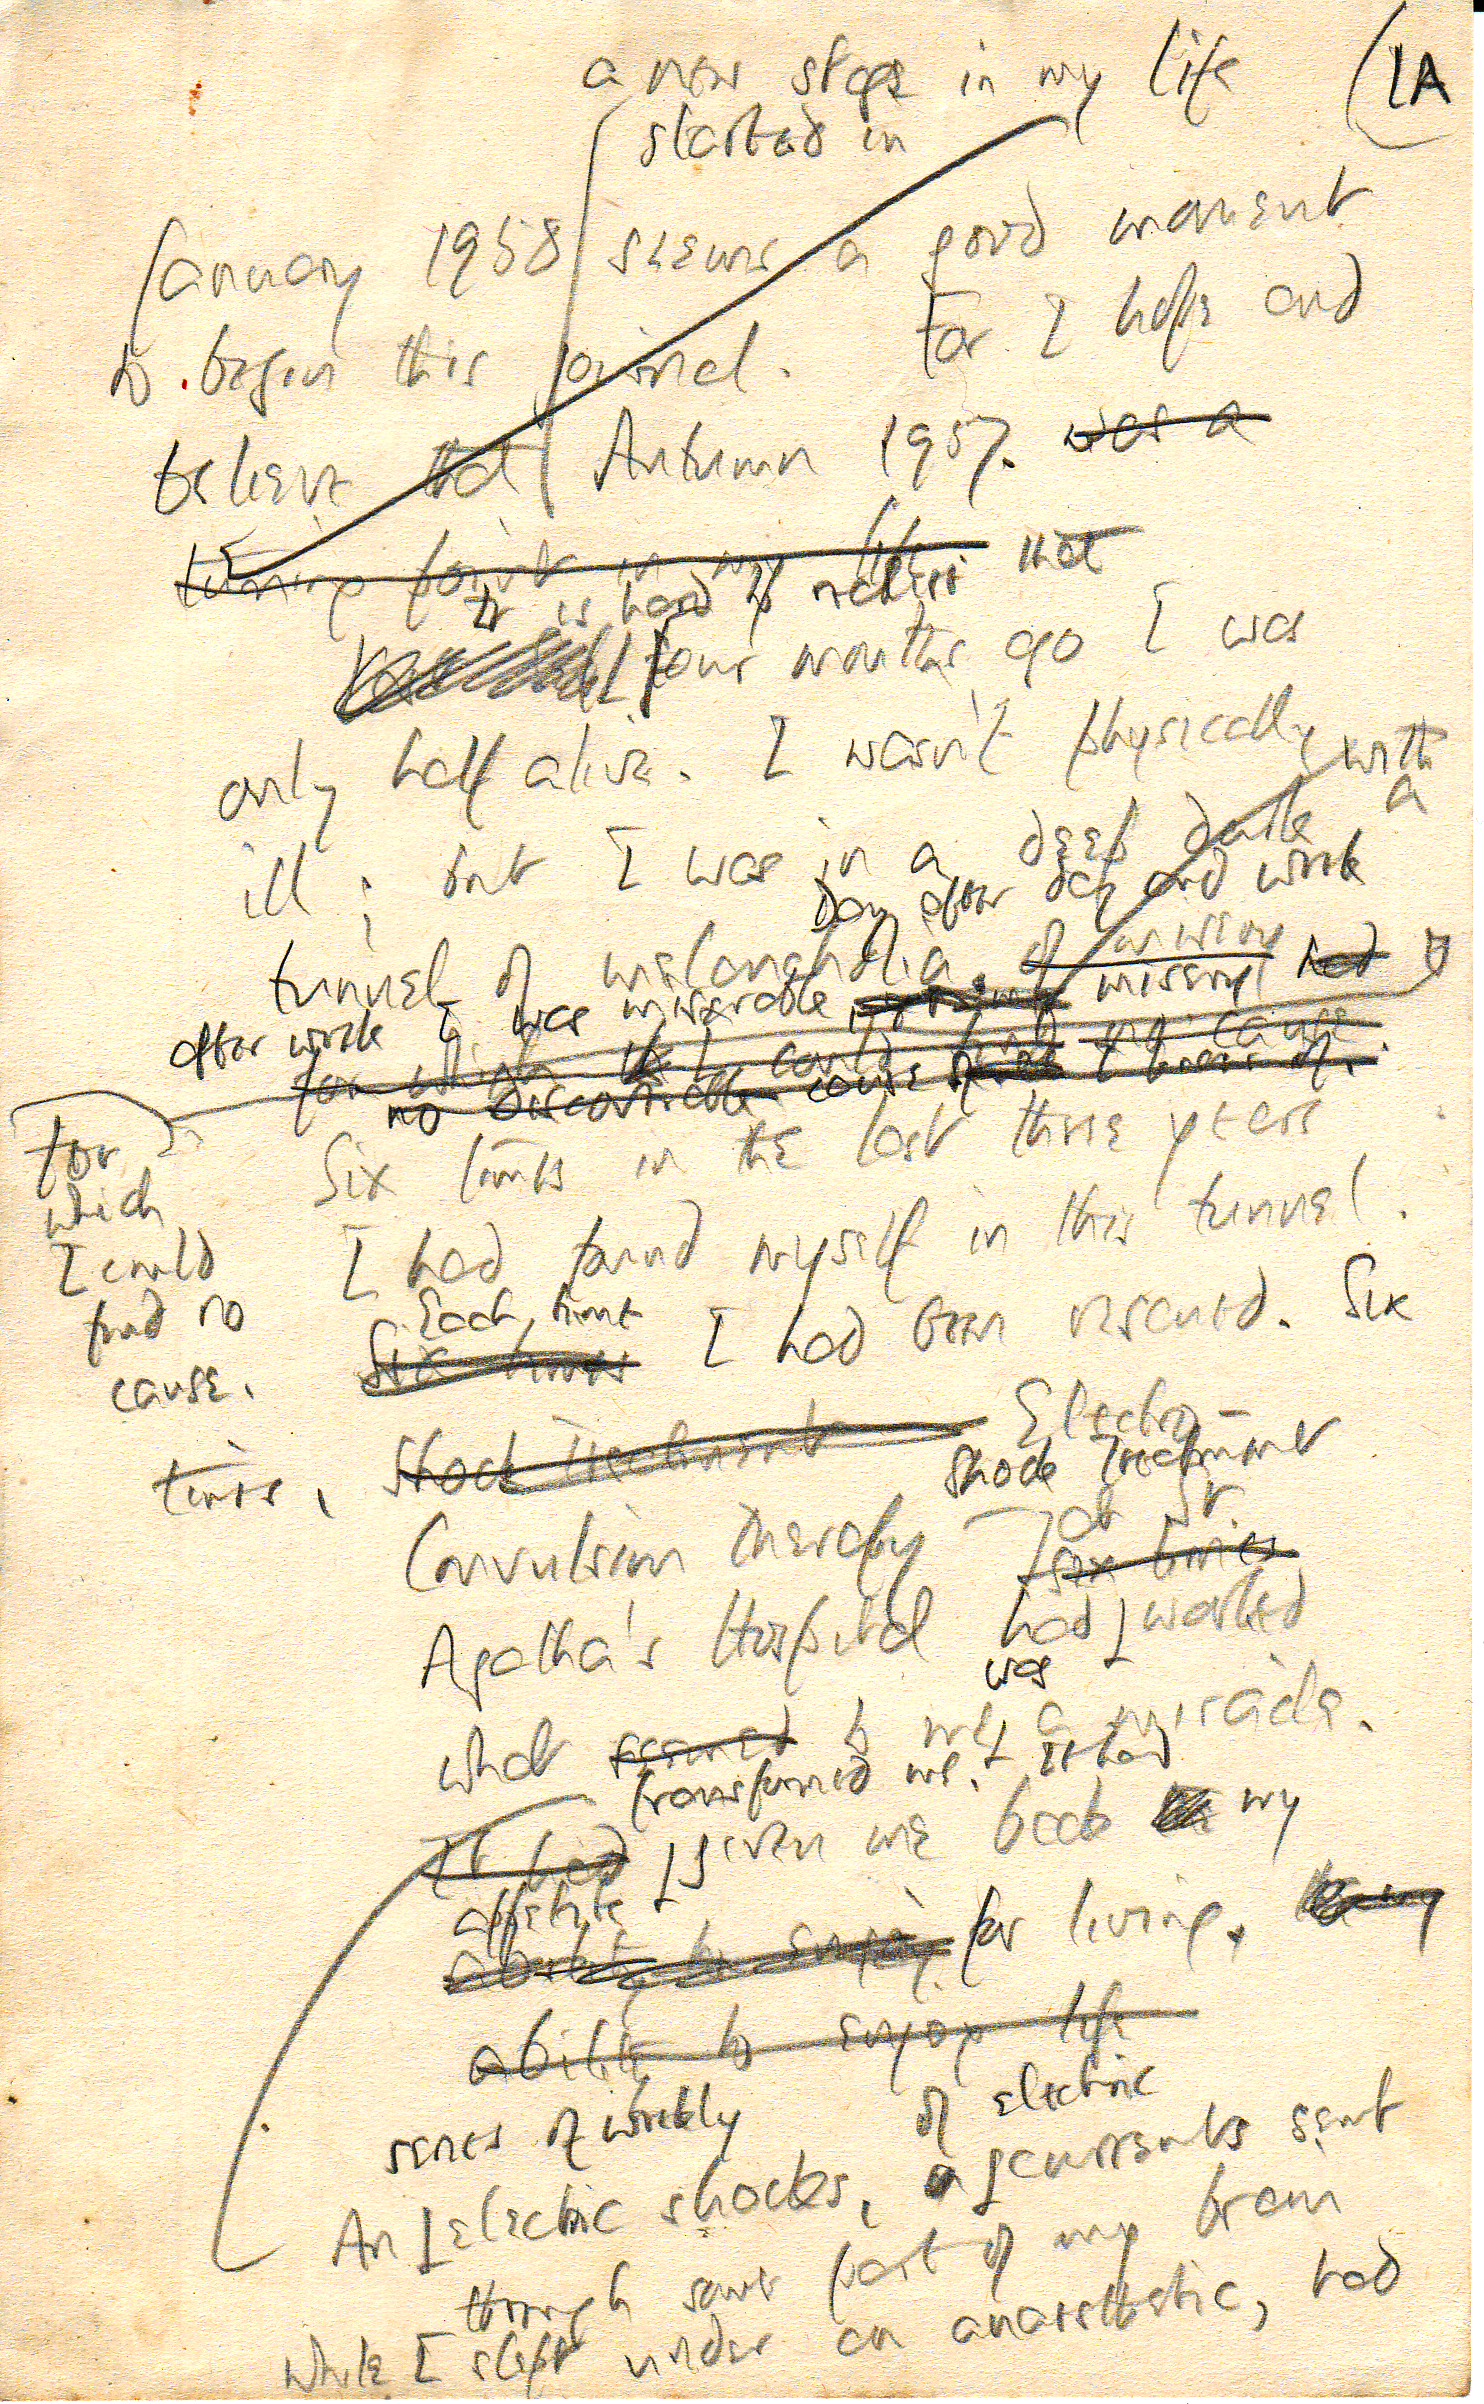 a new stage in my life (1A
started in
January 1958 seems a good moment
to begin this journal. For I hope and
believe that Autumn 1957. was a
turning point in my life that
It is hard to realise
four months ago I was
only half alive. I wasn't physically
ill; but I was in a deep dark with a
Day after day and week
tunnel of melancholia. of misery misery had
after week I was miserable,
for which I could find no cause
no discoverable cause
Six times in the last three years
I had found myself in this tunnel.
for
which
I could
find no
cause.
Each time
Six times I had been rescued. Six
times, Shock treatment Electro-
Shock Treatment
Convulsion Therapy at St.
six times
Agatha's Hospital had worked
was
what seemed to me a miracle.
transformed me. It had
It had given me back my
appetite
ability to enjoy for living,
ability to enjoy life
series of weekly of electric
An electric shocks, currents sent
through some part of my brain
while I slept under an anaesthetic, had